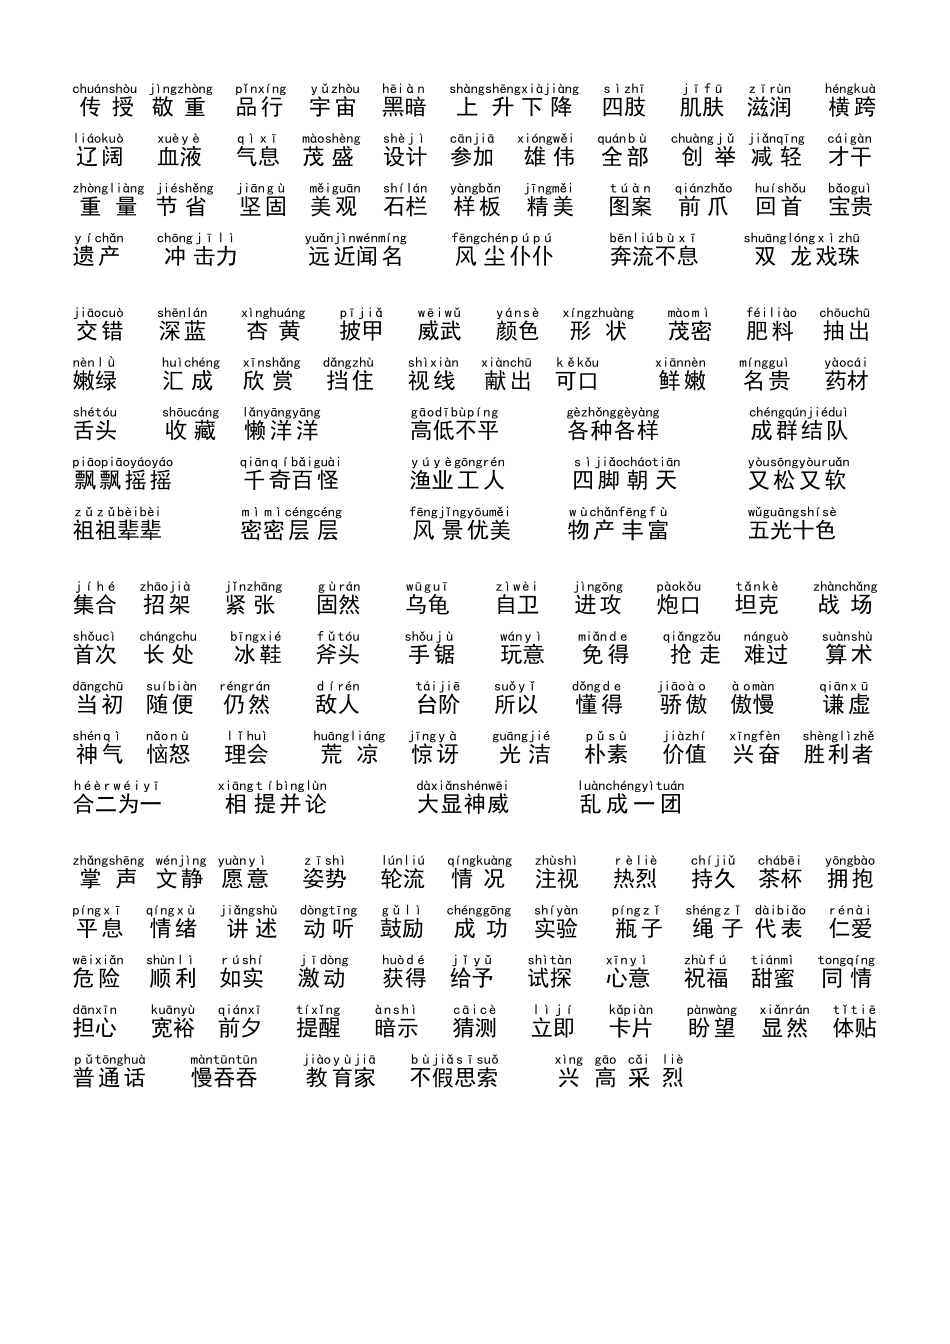 chuánshòu jìngzhòng pǐnxíng yǔzhòu hēiàn shàngshēngxiàjiàng sìzhī jīfū zīrùn héngkuà
传授 敬重 品行 宇宙 黑暗 上升下降 四肢 肌肤 滋润 横跨
liáokuò xuèyè qìxī màoshèng shèjì cānjiā xióngwěi quánbù chuàngjǔ jiǎnqīng cáigàn
辽阔 血液 气息 茂盛 设计 参加 雄伟 全部 创举 减轻 才干
zhòngliàng jiéshěng jiāngù měiguān shílán yàngbǎn jīngměi túàn qiánzhǎo huíshǒu bǎoguì
重量 节省 坚固 美观 石栏 样板 精美 图案 前爪 回首 宝贵
yíchǎn chōngjīlì yuǎnjìnwénmíng fēngchénpúpú bēnliúbùxī shuānglóngxìzhū
遗产 冲击力 远近闻名 风尘仆仆 奔流不息 双龙戏珠
jiāocuò shēnlán xìnghuáng pījiǎ wēiwǔ yánsè xíngzhuàng màomì féiliào chōuchū
交错 深蓝 杏黄 披甲 威武 颜色 形状 茂密 肥料 抽出
nènlǜ huìchéng xīnshǎng dǎngzhù shìxiàn xiànchū kěkǒu xiānnèn míngguì yàocái
嫩绿 汇成 欣赏 挡住 视线 献出 可口 鲜嫩 名贵 药材
shétóu shōucáng lǎnyāngyāng gāodībùpíng gèzhǒnggèyàng chéngqúnjiéduì
舌头 收藏 懒洋洋 高低不平 各种各样 成群结队
piāopiāoyáoyáo qiānqíbǎiguài yúyègōngrén sìjiǎocháotiān yòusōngyòuruǎn
飘飘摇摇 千奇百怪 渔业工人 四脚朝天 又松又软
zǔzǔbèibèi mìmìcéngcéng fēngjǐngyōuměi wùchǎnfēngfù wǔguāngshísè
祖祖辈辈 密密层层 风景优美 物产丰富 五光十色
jíhé zhāojià jǐnzhāng gùrán wūguī zìwèi jìngōng pàokǒu tǎnkè zhànchǎng
集合 招架 紧张 固然 乌龟 自卫 进攻 炮口 坦克 战场
shǒucì chángchu bīngxié fǔtóu shǒujù wányì miǎnde qiǎngzǒu nánguò suànshù
首次 长处 冰鞋 斧头 手锯 玩意 免得 抢走 难过 算术
dāngchū suíbiàn réngrán dírén táijiē suǒyǐ dǒngde jiāoào àomàn qiānxū
当初 随便 仍然 敌人 台阶 所以 懂得 骄傲 傲慢 谦虚
shénqì nǎonù lǐhuì huāngliáng jīngyà guāngjié pǔsù jiàzhí xīngfèn shènglìzhě
神气 恼怒 理会 荒凉 惊讶 光洁 朴素 价值 兴奋 胜利者
héèrwéiyī xiāngtíbìnglùn dàxiǎnshénwēi luànchéngyìtuán
合二为一 相提并论 大显神威 乱成一团
zhǎngshēng wénjìng yuànyì zīshì lúnliú qíngkuàng zhùshì rèliè chíjiǔ chábēi yōngbào
掌声 文静 愿意 姿势 轮流 情况 注视 热烈 持久 茶杯 拥抱
píngxī qíngxù jiǎngshù dòngtīng gǔlì chénggōng shíyàn píngzǐ shéngzǐ dàibiǎo rénài
平息 情绪 讲述 动听 鼓励 成功 实验 瓶子 绳子 代表 仁爱
wēixiǎn shùnlì rúshí jīdòng huòdé jǐyǔ shìtàn xīnyì zhùfú tiánmì tongqíng
危险 顺利 如实 激动 获得 给予 试探 心意 祝福 甜蜜 同情
dānxīn kuānyù qiánxī tíxǐng ànshì cāicè lìjí kǎpiàn pànwàng xiǎnrán tǐtiē
担心 宽裕 前夕 提醒 暗示 猜测 立即 卡片 盼望 显然 体贴
pǔtōnghuà màntūntūn jiàoyùjiā bùjiǎsīsuǒ xìng gāo cǎi liè
普通话 慢吞吞 教育家 不假思索 兴高采烈